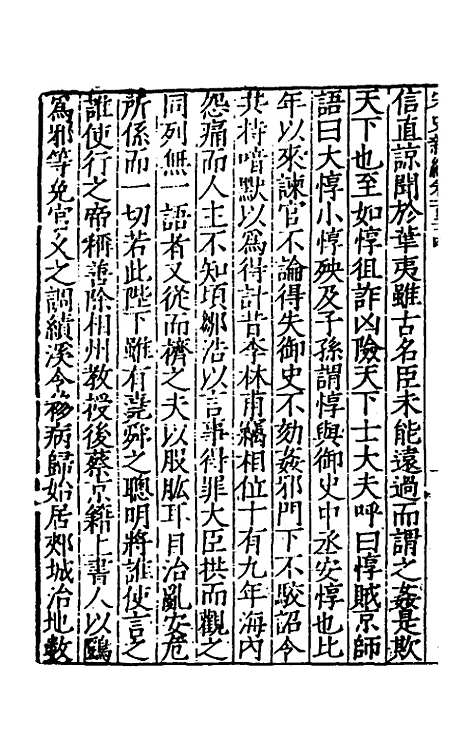 信直諒聞於華夷雖古名臣未能遠過而謂之姦是欺
天下也至如惇狙詐凶險天下士大夫呼曰惇賊京師
語曰大惇小惇殃及子孫謂惇與御史中丞安惇也比
年以來諫官不論得失御史不劾姦邪門下不駮詔令
共持喑默以為得計昔李林甫竊相位十有九年海內
怨痛而人主不知頃鄒浩以言事得罪大臣拱而觀之
同列無一語者又從而擠之夫以股肱耳目治亂安危
所係而一切若此陛下雖有堯舜之聰明將誰使言之
誰使行之帝稱善除相州教授後蔡京籍上書人以鷗
為邪等免官久之調績溪令移病歸始居郟城治地數